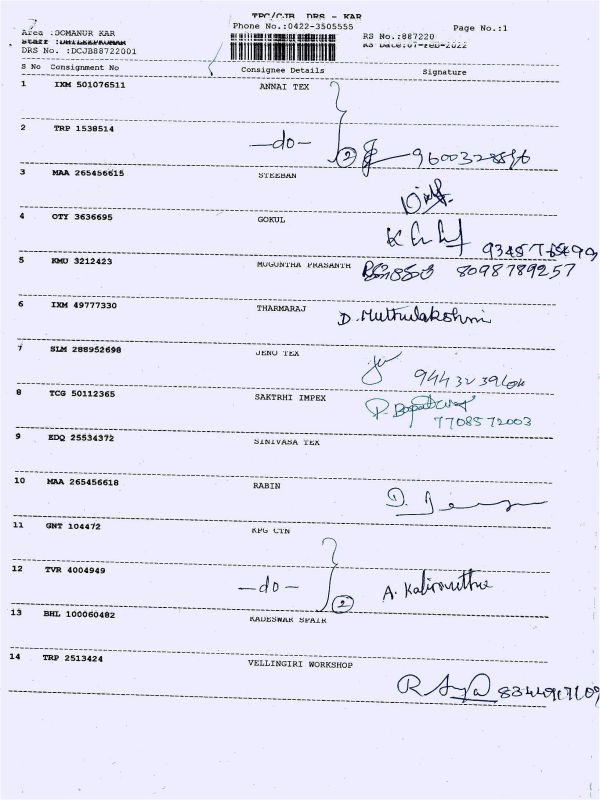 TPC/CJB DRS - KAR
Phone No.:0422-3505555 Page No.:1
Area :DOMANUR KAR RS No.:887220
Staff :DHILEEPKUMAR RS Date:07-Feb-2022
DRS No. :DCJB88722001
S No Consignment No Consignee Details Signature
1 IXM 501076511 ANNAI TEX
2 TRP 1538514 —do— 2
3 MAA 265456615 STEEBAN
4 OTY 3636695 GOKUL
5 KMU 3212423 MUGUNTHA PRASANTH 8098789257
6 IXM 49777330 THARMARAJ D. Muthulakshmi
7 SLM 288952698 JENO TEX
8 TCG 50112365 SAKTRHI IMPEX
7708572003
9 EDQ 25534372 SINIVASA TEX
10 MAA 265456618 RABIN
11 GNT 104472 KPG CTN
12 TVR 4004949 —do— 2 A. Kalimuthu
13 BHL 100060482 KADESWAR SPAIR
14 TRP 2513424 VELLINGIRI WORKSHOP